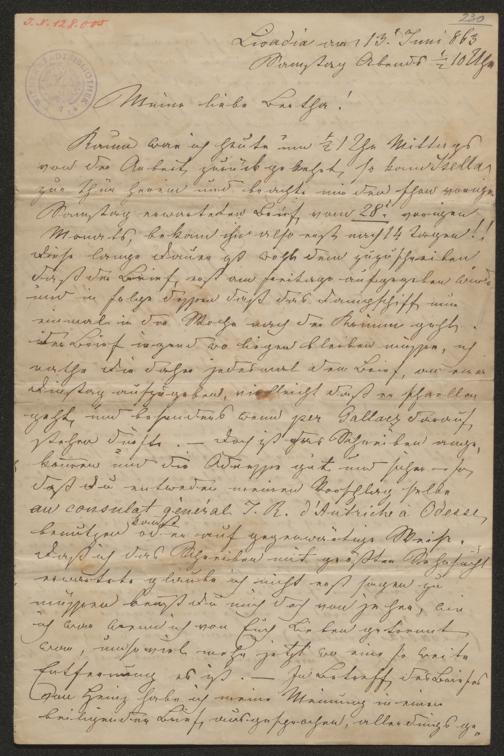 J. N. 128.005
230
Livadia am 13t Juni 863
Samstag Abends ½10 Uhr
Meine liebe Bertha!
Kaum war ich heute um ½1 Uhr Mittags
von der Arbeit zurück gekehrt, so kam
zur Thür herein und brachte mir den schon vorigen
Samstag erwarteten Brief vom 28t vorigen
Monats, bekam ihn also erst nach 14 Tagen!!
Diese lange Dauer ist wohl dem zuzuschreiben
daß der Brief erst am Freitage aufgegeben
und in Folge dessen daß das Dampfschiff nur
einmal in der Woche nach der Krimm geht,
der Brief irgend wo liegen bleiben müsse, ich
rathe Dir daher jedesmal den Brief, an einem
Dienstag aufzugeben, vielleicht daß er schneller
geht, und besonders wenn per Gallacz darauf
stehen dürfte. — Doch ist das Schreiben ange-
kommen und die Adresse gut und sicher — so
daß Du entweder meinen Vorschlag selbe
au consulat général I. R. d'Autriche à Odessa,
benutzen kannst oder auf gegenwärtige Weise.
Daß ich das Schreiben mit größter Sehnsucht
erwartete glaube ich nicht erst sagen zu
müssen kennst Du mich doch von jeher, wie
ich war wenn ich von Euch Lieben getrennt
war, um so viel mehr jetzt wo eine so weite
Entfernung es ist. — In Betreff des Briefes
von habe ich meine Meinung in einem
beiliegenden Brief ausgesprochen, allerdings ge-